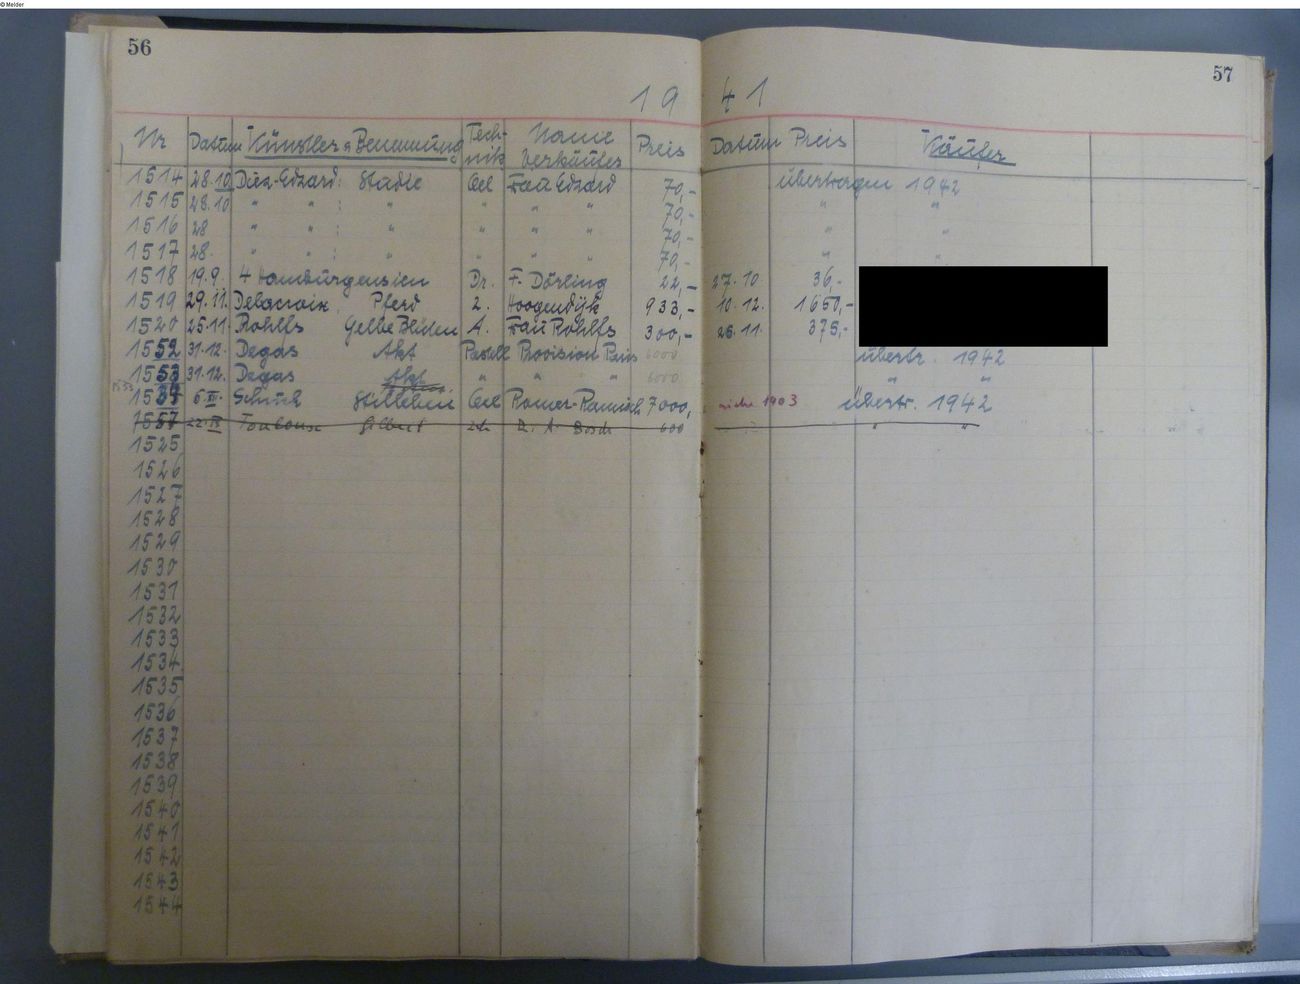 © Melder
56
57
19 41
Nr Datum Künstler & Benennung Technik Name Verkäufer Preis Datum Preis Käufer
1514 28.10 Duz-Edzard: Studie Oel Frau Edzard 70,- übertragen 1942
1515 28.10 " " : " " " " 70,- " "
1516 28 " " : " " " " 70,- " "
1517 28. " " : " " " " 70,- " "
1518 19.9. 4 Hamburgensien Dr. F. Dörling 22,- 27.10 36,-
1519 29.11. Delacroix Pferd Z. Hoogendijk 933,- 10.12. 1650,-
1520 25.11. Rohlfs Gelbe Blüten A. Frau Rohlfs 300,- 26.11. 375,-
1552 31.12. Degas Akt Pastell Provision Paris 6000 übertr. 1942
1553 31.12. Degas Akt " " " 6000 " "
1553
15 6.XII. Schuch Stilleben Oel Romer- 7000, siehe 1903 Übertr. 1942
1557 22.IX Toulouse Gilbert Dr. A. Bosch 600 " "
1525
1526
1527
1528
1529
1530
1531
1532
1533
1534
1535
1536
1537
1538
1539
1540
1541
1542
1543
1544